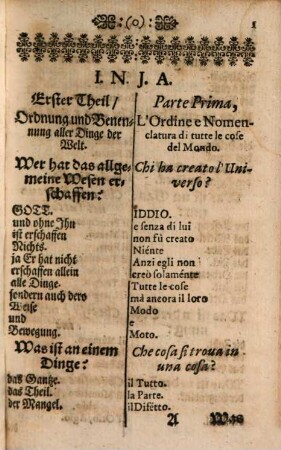 (o) 1
I. N. J. A.
Erster Theil/
Ordnung und Benen-
nung aller Dinge der
Welt.
Wer hat das allge-
meine Wesen er-
schaffen?
GOTT.
und ohne Ihn
ist erschaffen
Nichts.
ja Er hat nicht
erschaffen allein
alle Dinge.
sondern auch dero
Weise
und
Bewegung.
Was ist an einem
Dinge?
das Gantze.
das Theil.
der Mangel.
Parte Prima,
L'Ordine e Nomen-
clatura di tutte le cose
del Mondo.
Chi ha creato l'Uni-
verso?
IDDIO.
e senza di lui
non fù creato
Niénte
Anzi egli non
creò solaménte
Tutte le cose
mà ancora il loro
Modo
e
Moto.
Che cosa si trova in
una cosa?
il Tutto.
la Parte.
il Difétto.
A Was